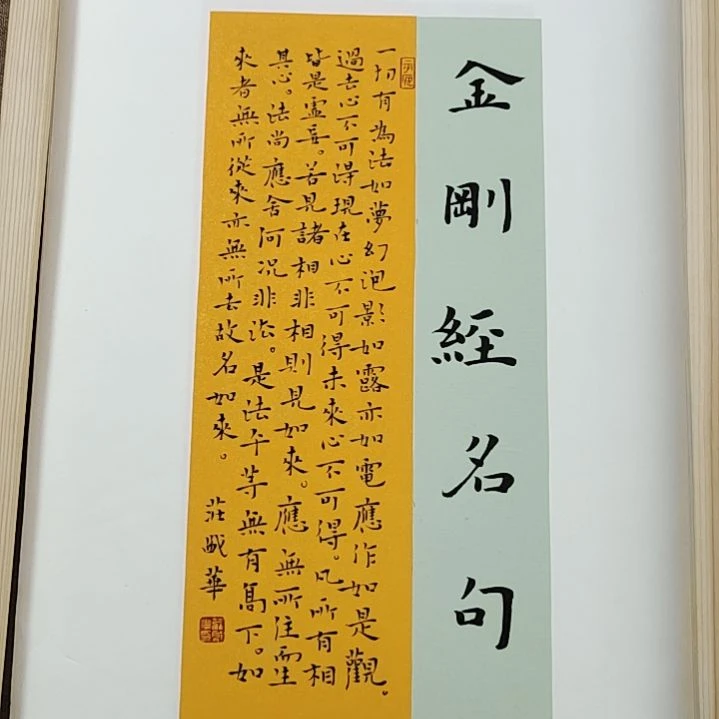 金剛經名句
一切有為法如夢幻泡影如露亦如電應作如是觀。
過去心不可得現在心不可得未來心不可得。凡所有相
皆是虛妄。若見諸相非相則見如來。應無所住而生
其心。法尚應舍何況非法。是法平等無有高下。如
來者無所從來亦無所去故名如來。
莊戩華